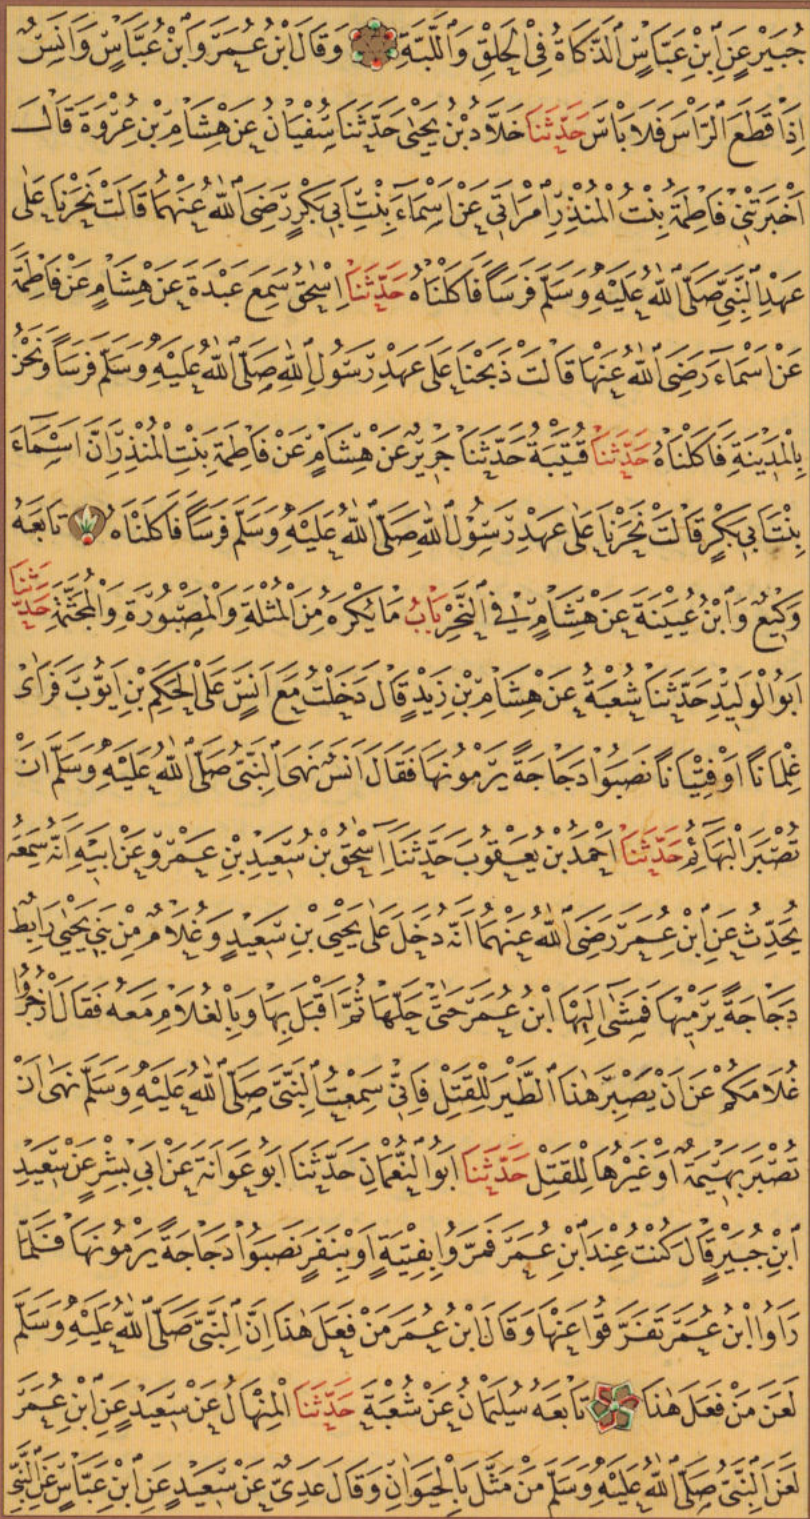 جُبَيْرٍ عَنِ ابْنِ عَبَّاسٍ الذَّكَاةُ فِي الْحَلْقِ وَاللَّبَّةِ وَقَالَ ابْنُ عُمَرَ وَابْنُ عَبَّاسٍ وَأَنَسٌ
اِذَا قَطَعَ الرَّأْسَ فَلَا بَأْسَ حَدَّثَنَا خَلَّادُ بْنُ يَحْيَى حَدَّثَنَا سُفْيَانُ عَنْ هِشَامِ بْنِ عُرْوَةَ قَالَ
اَخْبَرَتْنِي فَاطِمَةُ بِنْتُ الْمُنْذِرِ امْرَاَتِي عَنْ اَسْمَاءَ بِنْتِ اَبِي بَكْرٍ رَضِيَ اللّٰهُ عَنْهُمَا قَالَتْ نَحَرْنَا عَلٰى
عَهْدِ النَّبِيِّ صَلَّى اللّٰهُ عَلَيْهِ وَسَلَّمَ فَرَسًا فَاَكَلْنَاهُ حَدَّثَنَا اِسْحٰقُ سَمِعَ عَبْدَةَ عَنْ هِشَامٍ عَنْ فَاطِمَةَ
عَنْ اَسْمَاءَ رَضِيَ اللّٰهُ عَنْهَا قَالَتْ ذَبَحْنَا عَلَى عَهْدِ رَسُولِ اللّٰهِ صَلَّى اللّٰهُ عَلَيْهِ وَسَلَّمَ فَرَسًا وَنَحْنُ
بِالْمَدِينَةِ فَاَكَلْنَاهُ حَدَّثَنَا قُتَيْبَةُ حَدَّثَنَا جَرِيرٌ عَنْ هِشَامٍ عَنْ فَاطِمَةَ بِنْتِ الْمُنْذِرِ اَنَّ اَسْمَاءَ
بِنْتَ اَبِي بَكْرٍ قَالَتْ نَحَرْنَا عَلٰى عَهْدِ رَسُولِ اللّٰهِ صَلَّى اللّٰهُ عَلَيْهِ وَسَلَّمَ فَرَسًا فَاَكَلْنَاهُ تَابَعَهُ
وَكِيعٌ وَابْنُ عُيَيْنَةَ عَنْ هِشَامٍ فِي النَّحْرِ بَابُ مَا يُكْرَهُ مِنَ الْمُثْلَةِ وَالْمَصْبُورَةِ وَالْمُجَثَّمَةِ حَدَّثَنَا
اَبُو الْوَلِيدِ حَدَّثَنَا شُعْبَةُ عَنْ هِشَامِ بْنِ زَيْدٍ قَالَ دَخَلْتُ مَعَ اَنَسٍ عَلَى الْحَكَمِ بْنِ اَيُّوبَ فَرَاٰى
غِلْمَانًا اَوْ فِتْيَانًا نَصَبُوا دَجَاجَةً يَرْمُونَهَا فَقَالَ اَنَسٌ نَهَى النَّبِيُّ صَلَّى اللّٰهُ عَلَيْهِ وَسَلَّمَ اَنْ
تُصْبَرَ الْبَهَائِمُ حَدَّثَنَا اَحْمَدُ بْنُ يَعْقُوبَ حَدَّثَنَا اِسْحٰقُ بْنُ سَعِيدِ بْنِ عَمْرٍو عَنْ اَبِيهِ اَنَّهُ سَمِعَهُ
يُحَدِّثُ عَنِ ابْنِ عُمَرَ رَضِيَ اللّٰهُ عَنْهُمَا اَنَّهُ دَخَلَ عَلَى يَحْيَى بْنِ سَعِيدٍ وَغُلَامٌ مِنْ بَنِي يَحْيَى رَابِطٌ
دَجَاجَةً يَرْمِيهَا فَمَشٰى اِلَيْهَا ابْنُ عُمَرَ حَتّٰى حَلَّهَا ثُمَّ اَقْبَلَ بِهَا وَبِالْغُلَامِ مَعَهُ فَقَالَ ازْجُرُوا
غُلَامَكُمْ عَنْ اَنْ يَصْبِرَ هٰذَا الطَّيْرَ لِلْقَتْلِ فَاِنِّي سَمِعْتُ النَّبِيَّ صَلَّى اللّٰهُ عَلَيْهِ وَسَلَّمَ نَهٰى اَنْ
تُصْبَرَ بَهِيمَةٌ اَوْ غَيْرُهَا لِلْقَتْلِ حَدَّثَنَا اَبُو النُّعْمَانِ حَدَّثَنَا اَبُو عَوَانَةَ عَنْ اَبِي بِشْرٍ عَنْ سَعِيدِ
ابْنِ جُبَيْرٍ قَالَ كُنْتُ عِنْدَ ابْنِ عُمَرَ فَمَرُّوا بِفِتْيَةٍ اَوْ بِنَفَرٍ نَصَبُوا دَجَاجَةً يَرْمُونَهَا فَلَمَّا
رَاَوُا ابْنَ عُمَرَ تَفَرَّقُوا عَنْهَا وَقَالَ ابْنُ عُمَرَ مَنْ فَعَلَ هٰذَا اِنَّ النَّبِيَّ صَلَّى اللّٰهُ عَلَيْهِ وَسَلَّمَ
لَعَنَ مَنْ فَعَلَ هٰذَا تَابَعَهُ سُلَيْمَانُ عَنْ شُعْبَةَ حَدَّثَنَا الْمِنْهَالُ عَنْ سَعِيدٍ عَنِ ابْنِ عُمَرَ
لَعَنَ النَّبِيُّ صَلَّى اللّٰهُ عَلَيْهِ وَسَلَّمَ مَنْ مَثَّلَ بِالْحَيَوَانِ وَقَالَ عَدِيٌّ عَنْ سَعِيدٍ عَنِ ابْنِ عَبَّاسٍ عَنِ النَّبِيِّ